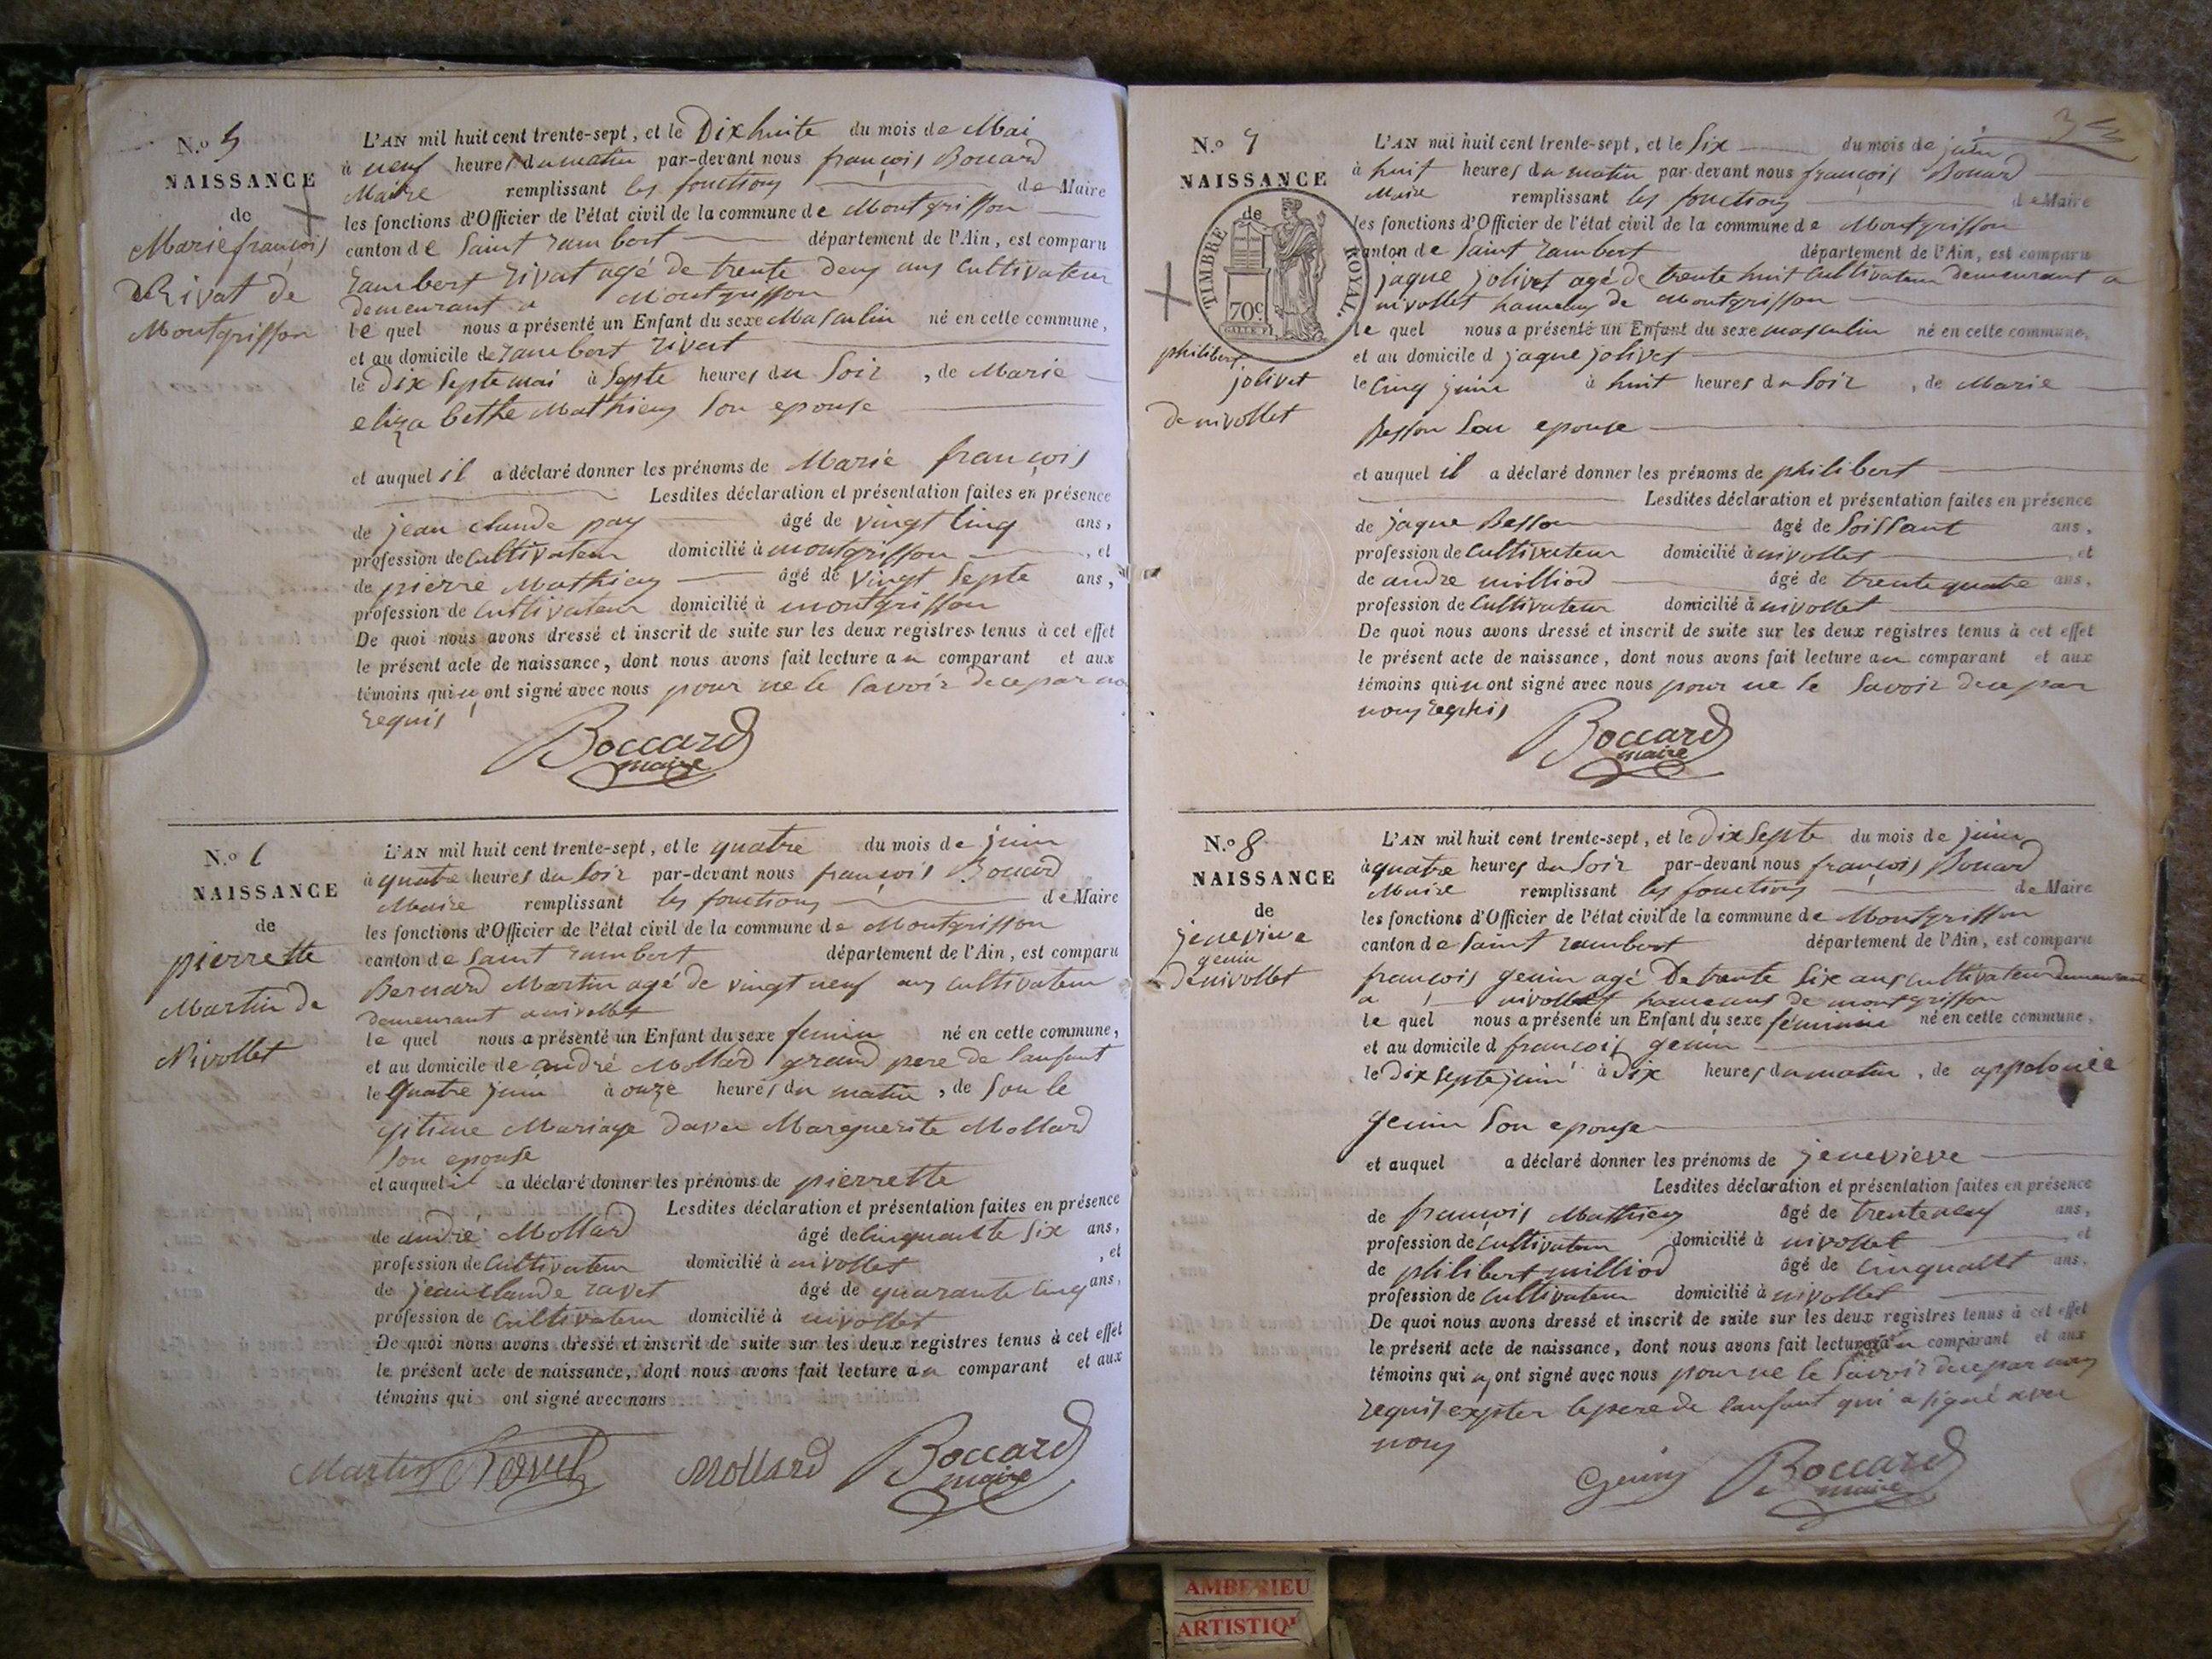 N.o 5
NAISSANCE
de
Marie françois
Rivat de
Montgriffon
L'AN mil huit cent trente-sept, et le Dix huite du mois de Mai
à neuf heures du matin par-devant nous françois Boccard
Maire remplissant les fonctions de Maire
les fonctions d'Officier de l'état civil de la commune de Montgriffon
canton de Saint rambert département de l'Ain, est comparu
rambert rivat agé de trente deux ans Cultivateur
demeurant a Montgriffon
le quel nous a présenté un Enfant du sexe Masculin né en cette commune,
et au domicile de rambert rivat
le dix septe mai à septe heures du Soir, de Marie
eliza bethe Mathieu Son epouse
et auquel il a déclaré donner les prénoms de Marie françois
Lesdites déclaration et présentation faites en présence
de jean claude pay âgé de vingt cinq ans,
profession de Cultivateur domicilié à montgriffon, et
de pierre Mathieu âgé de vingt Septe ans,
profession de Cultivateur domicilié à montgriffon
De quoi nous avons dressé et inscrit de suite sur les deux registres tenus à cet effet
le présent acte de naissance, dont nous avons fait lecture au comparant et aux
témoins qui n ont signé avec nous pour ne le Savoir de ce par
requis
Boccard
maire
N.o 6
NAISSANCE
de
pierrette
Martin de
Nivollet
L'AN mil huit cent trente-sept, et le quatre du mois de juin
à quatre heures du Soir par-devant nous françois Boccard
Maire remplissant les fonctions de Maire
les fonctions d'Officier de l'état civil de la commune de Montgriffon
canton de Saint rambert département de l'Ain, est comparu
Bernard Martin agé de vingt neuf ans Cultivateur
demeurant a nivollet
le quel nous a présenté un Enfant du sexe femin né en cette commune,
et au domicile de andré Mollard grand pere de l'anfant
le Quatre juin à onze heures du matin, de Son le
gitime Mariage d'avec Marguerite Mollard
Son epouse
et auquel il a déclaré donner les prénoms de pierrette
Lesdites déclaration et présentation faites en présence
de andré Mollard âgé de Cinquante Six ans,
profession de Cultivateur domicilié à nivollet, et
de jean claude ravet âgé de quarante cinq ans,
profession de Cultivateur domicilié à nivollet
De quoi nous avons dressé et inscrit de suite sur les deux registres tenus à cet effet
le présent acte de naissance, dont nous avons fait lecture au comparant et aux
témoins qui ont signé avec nous
Martin Ravet Mollard Boccard
maire
N.o 7
NAISSANCE
de
TIMBRE ROYAL.
70c
philibert
jolivet
de nivollet
L'AN mil huit cent trente-sept, et le Six du mois de juin
à huit heures du matin par-devant nous françois Boccard
Maire remplissant les fonctions de Maire
les fonctions d'Officier de l'état civil de la commune de Montgriffon
canton de Saint rambert département de l'Ain, est comparu
jaque jolivet agé de trente huit Cultivateur demeurant a
nivollet hameau de Montgriffon
le quel nous a présenté un Enfant du sexe masculin né en cette commune,
et au domicile d jaque jolivet
le Cinq juin à huit heures du Soir, de Marie
Besson Son epouse
et auquel il a déclaré donner les prénoms de philibert
Lesdites déclaration et présentation faites en présence
de jaque Besson âgé de Soissant ans,
profession de Cultivateur domicilié à nivollet, et
de andre milliod âgé de trente quatre ans,
profession de Cultivateur domicilié à nivollet
De quoi nous avons dressé et inscrit de suite sur les deux registres tenus à cet effet
le présent acte de naissance, dont nous avons fait lecture au comparant et aux
témoins qui n ont signé avec nous pour ne le Savoir de ce par
nous requis
Boccard
maire
N.o 8
NAISSANCE
de
jenevieve
genin
de nivollet
L'AN mil huit cent trente-sept, et le Dix Septe du mois de juin
à quatre heures du Soir par-devant nous françois Boccard
Maire remplissant les fonctions de Maire
les fonctions d'Officier de l'état civil de la commune de Montgriffon
canton de Saint rambert département de l'Ain, est comparu
françois genin agé De trante Six ans cultivateur demeurant
a nivollet hameaus de montgriffon
le quel nous a présenté un Enfant du sexe féminin né en cette commune,
et au domicile d françois genin
le Dix septe juin à dix heures du matin, de appolonie
genin Son epouse
et auquel a déclaré donner les prénoms de jenevieve
Lesdites déclaration et présentation faites en présence
de françois Mathieu âgé de trente neuf ans,
profession de Cultivateur domicilié à nivollet, et
de philibert milliod âgé de Cinquante ans,
profession de Cultivateur domicilié à nivollet
De quoi nous avons dressé et inscrit de suite sur les deux registres tenus à cet effet
le présent acte de naissance, dont nous avons fait lecture au comparant et aux
témoins qui n ont signé avec nous pour ne le Savoir de ce par nous
requis expter le pere de l'anfant qui a signé avec
nous
Genin Boccard
maire
AMBERIEU
ARTISTIQ